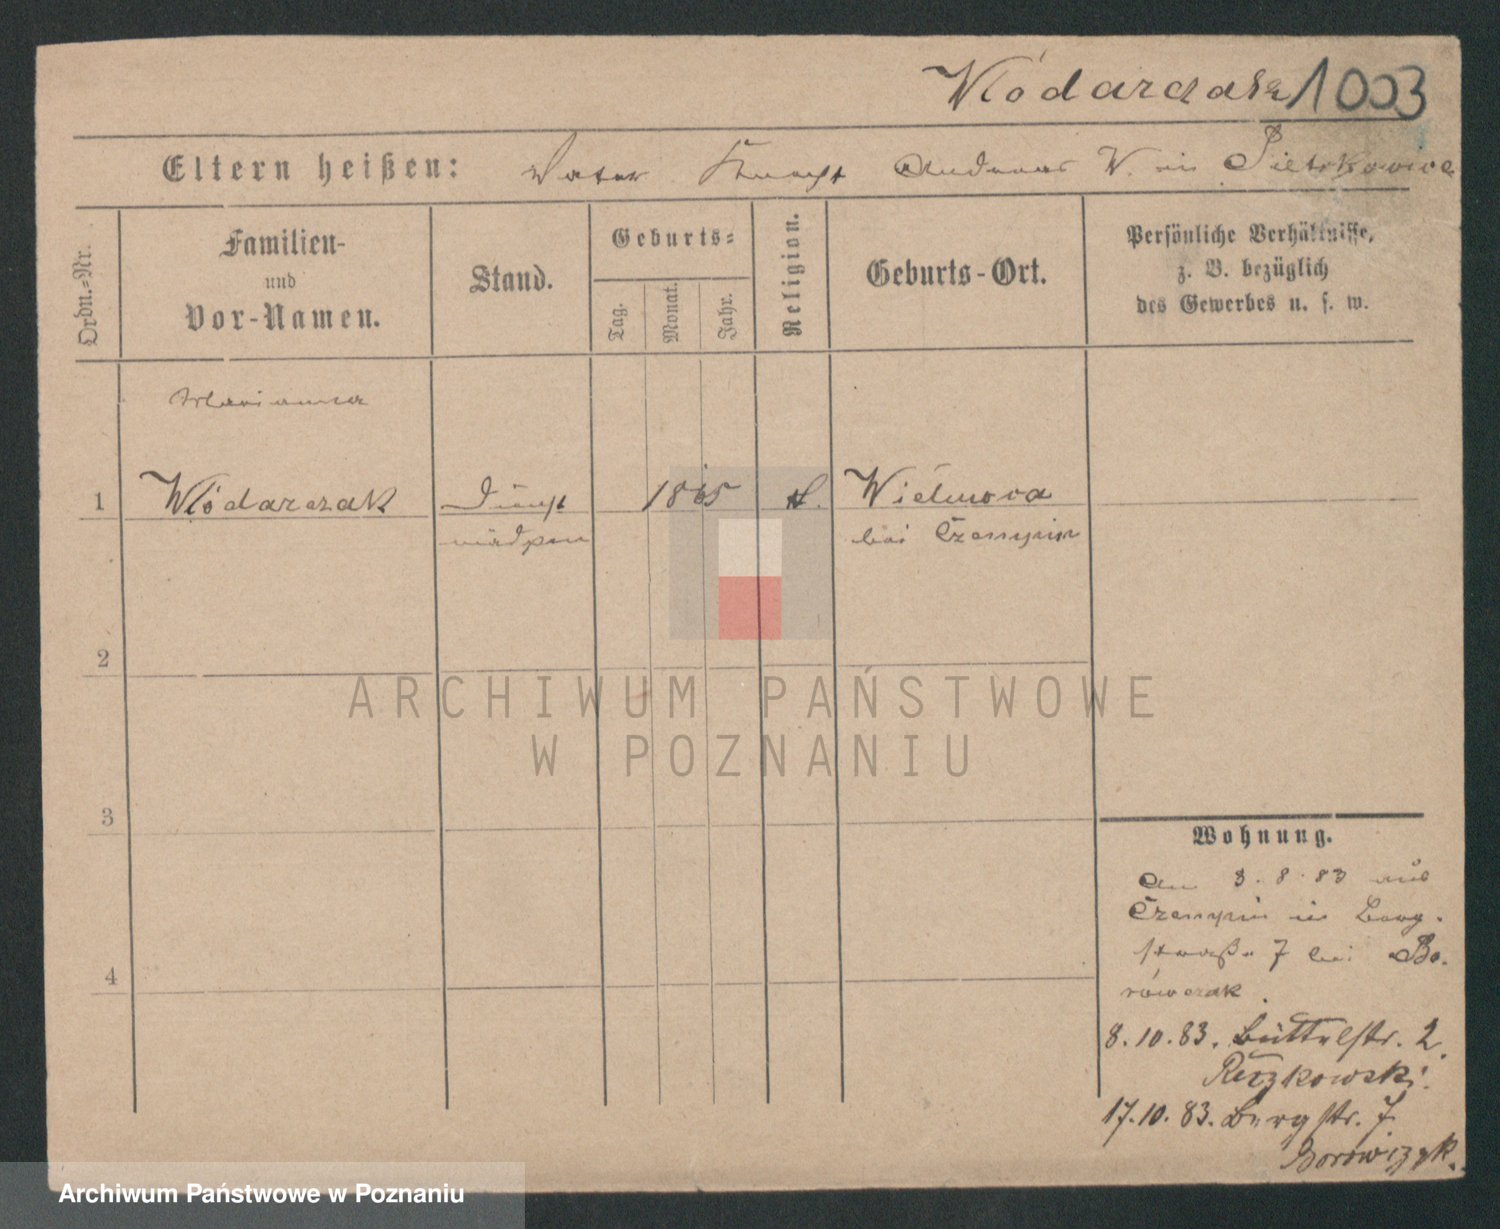 Włódarczak 1003
Eltern heißen: Vater Knecht Andreas W. in Pietrkowice
Ordn.-Nr.
Familien-
und
Vor-Namen.
Stand.
Geburts-
Tag.
Monat.
Jahr.
Religion.
Geburts-Ort.
Persönliche Verhältnisse,
z. B. bezüglich
des Gewerbes u. s. w.
Marianna
1 Włódarczak Dienst 1865 k.
mädchen bei Czempin
2
3
4
Wohnung.
Am 3.8.83 aus
Czempin in Berg-
straße 7 bei Bo-
rówczak.
8.10.83. Büttelstr. 2.
17.10.83. Bergstr. 7.
ARCHIWUM PAŃSTWOWE
W POZNANIU
Archiwum Państwowe w Poznaniu